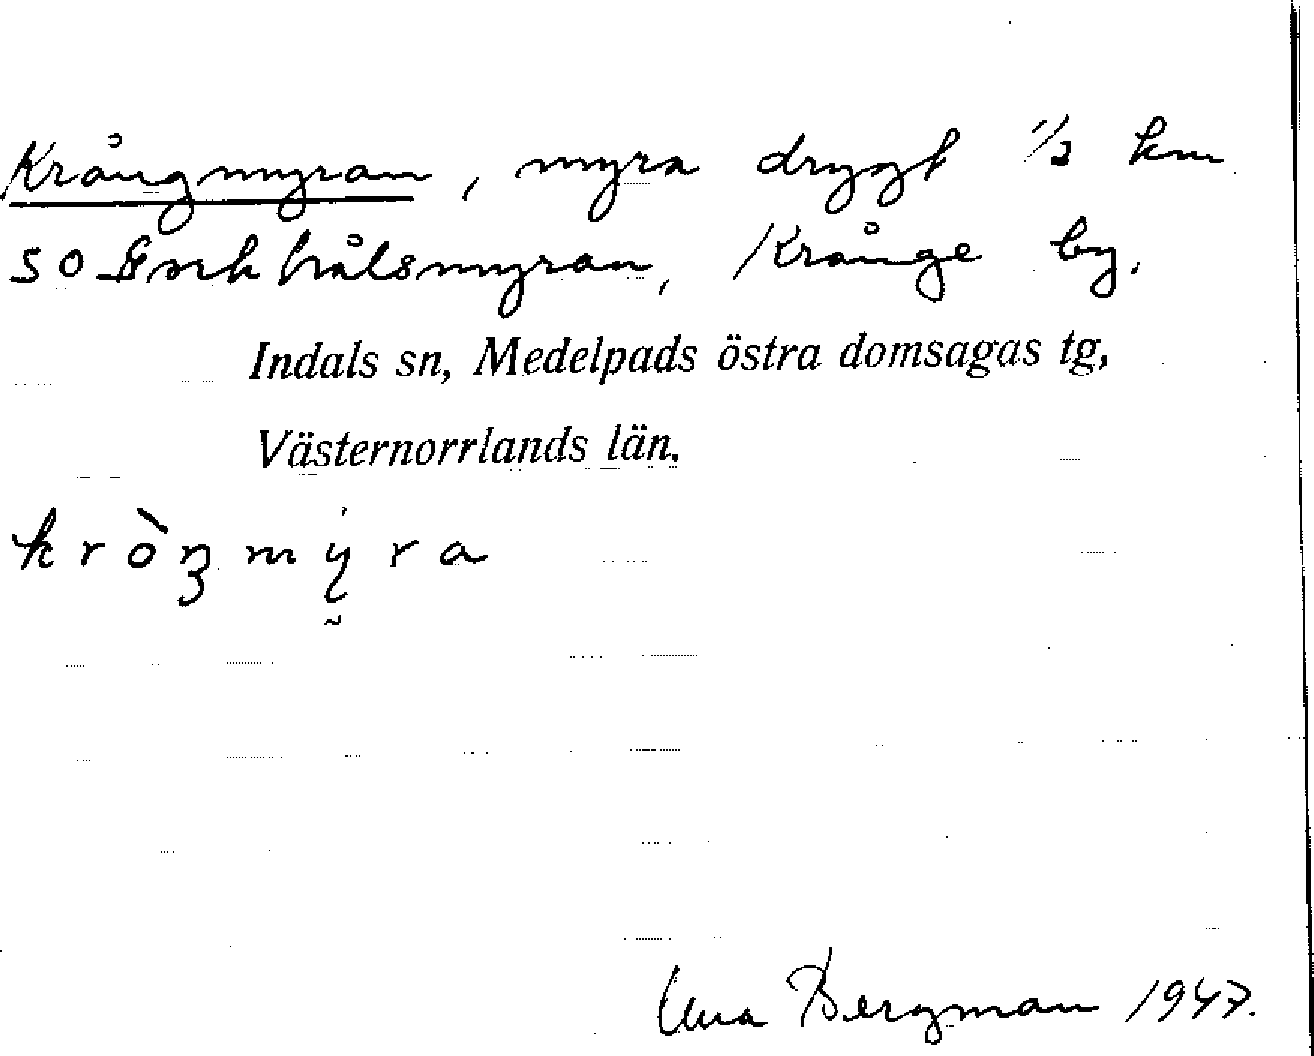 Krångmyran, myra drygt 1/2 km
SO hålsmyran, Krånge by.
Indals sn, Medelpads östra domsagas tg,
Västernorrlands län.
Bergman 1947.